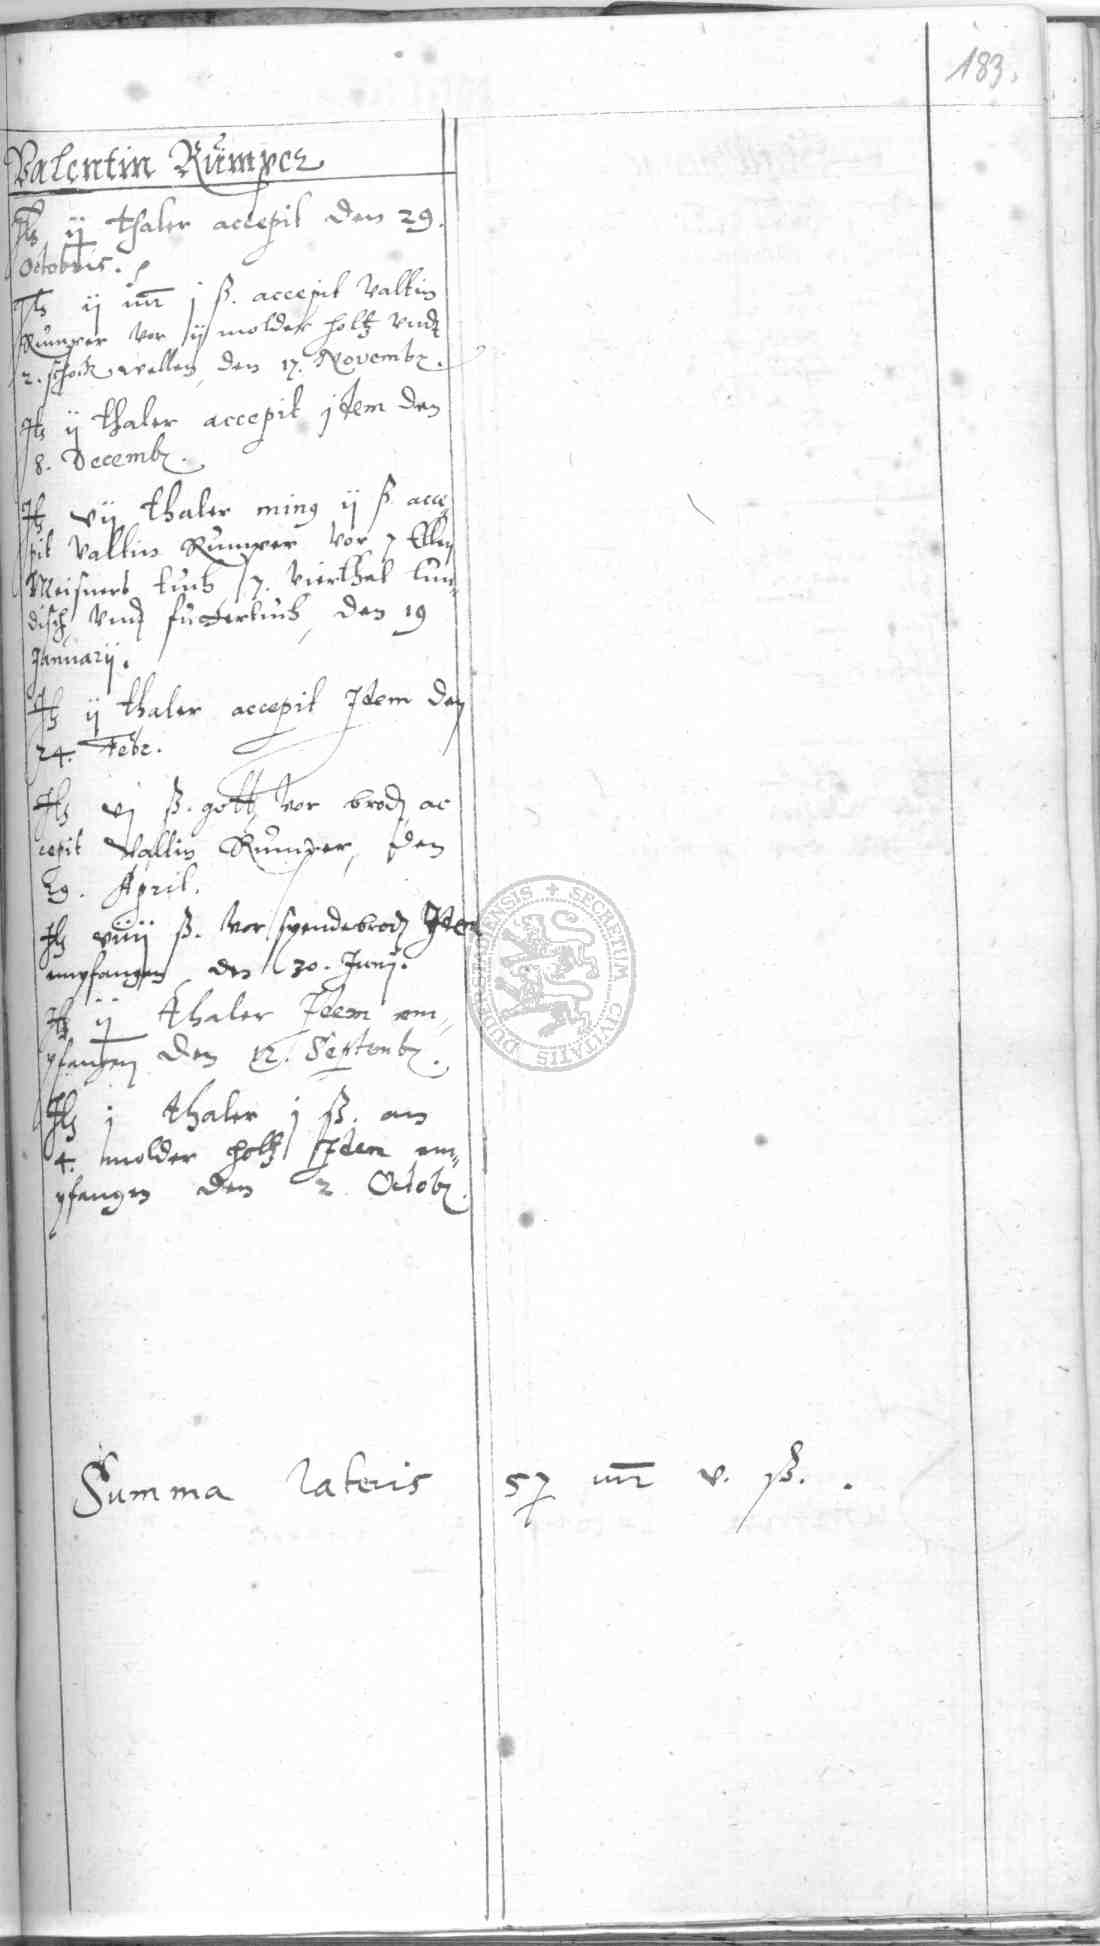 183.
Valentin Rumper
It ij thaler accepit den 29.
Octobris.
It ij mr j ß. accepit Valtin
Rumper vor ij molder holtz vnd
2. schock wellen, den 17. Novemb.
It ij thaler accepit jdem den
8. Decemb.
It vij thaler ming ij ß acce
pit Valtin Rumper vor 7 Ellen
Meisners tuch 7. vierthel lun-
disch vnd futtertuch, den 19
Januarij.
It ij thaler accepit Idem den
24. Febr.
It vj ß. gottz vor brodt ac
cepit Valtin Rumper, den
29. April.
It viiij ß. vor spendebrodt Idem
empfangen den 30. Junij.
It ij thaler Idem em-
pfangen den 12. Septemb.
It j thaler j ß. an
4. molder holtz Idem em-
pfangen den 2 Octob.
SECRETUM CIVITATIS DUDERSTADENSIS
Summa lateris 57 mr v. ß.